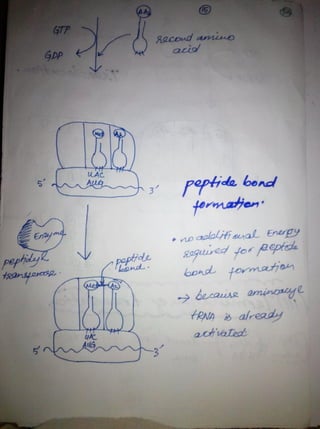 AA2
GTP
GDP
second amino
acid
Met
UAC
AUG
5' 3'
peptide bond
formation.
Enzyme
peptidyl
transferase.
• no additional Energy
required for peptide
bond formation
→ because aminoacyl
tRNA is already
activated
peptide
bond.
Met
UAC
AUG
5' 3'